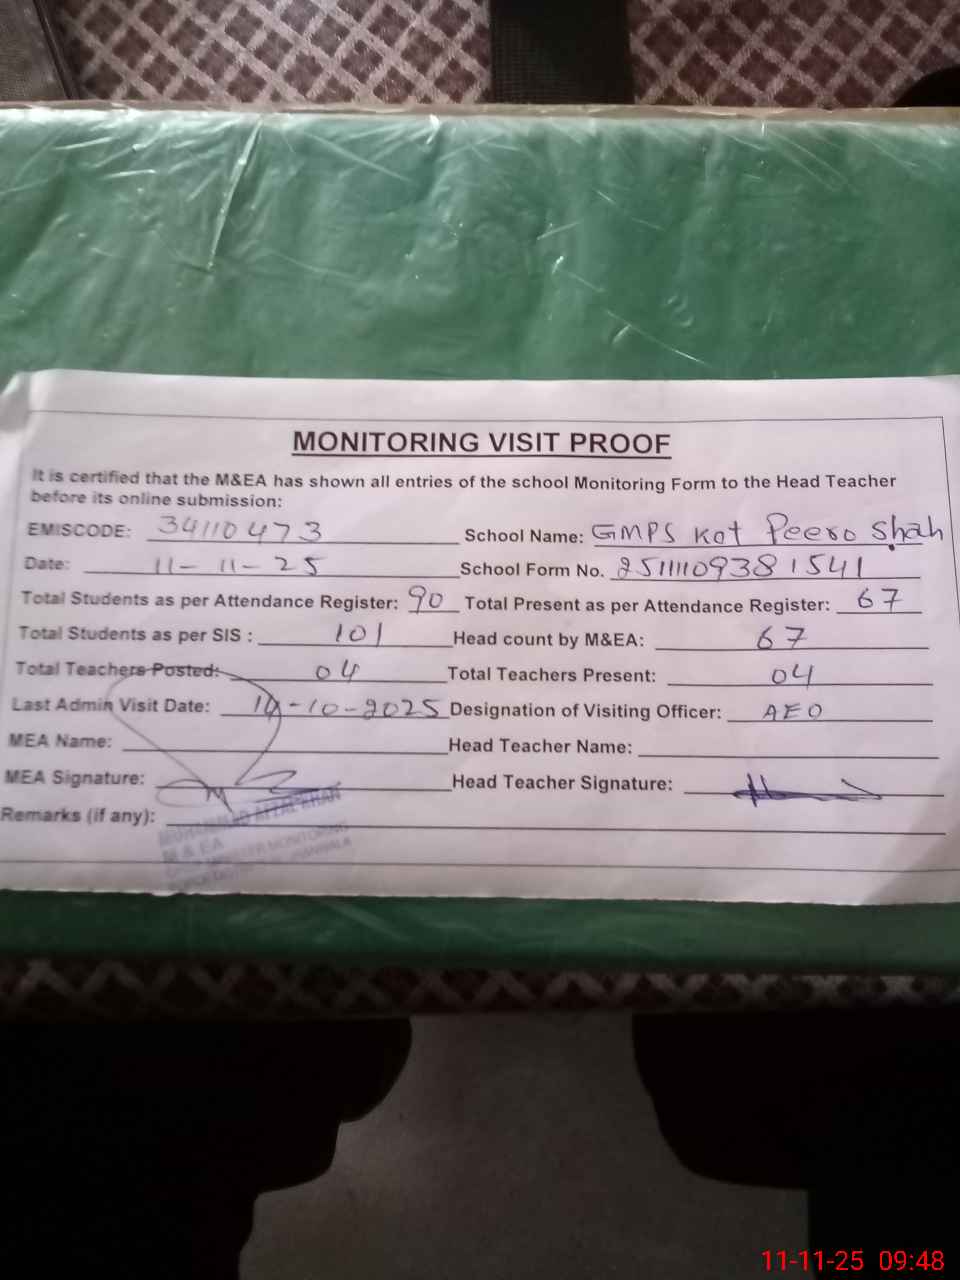 MONITORING VISIT PROOF
It is certified that the M&EA has shown all entries of the school Monitoring Form to the Head Teacher
before its online submission:
EMISCODE: 34110473 School Name: GMPS Kot Peero Shah
Date: 11-11-25 School Form No. 2511110938 1541
Total Students as per Attendance Register: 90 Total Present as per Attendance Register: 67
Total Students as per SIS : 101 Head count by M&EA: 67
Total Teachers Posted: 04 Total Teachers Present: 04
Last Admin Visit Date: 14-10-2025 Designation of Visiting Officer: AEO
MEA Name: Head Teacher Name:
MEA Signature: Head Teacher Signature:
Remarks (if any):
MUHAMMAD AFZAL KHAN
M & EA
MONITORING
11-11-25 09:48